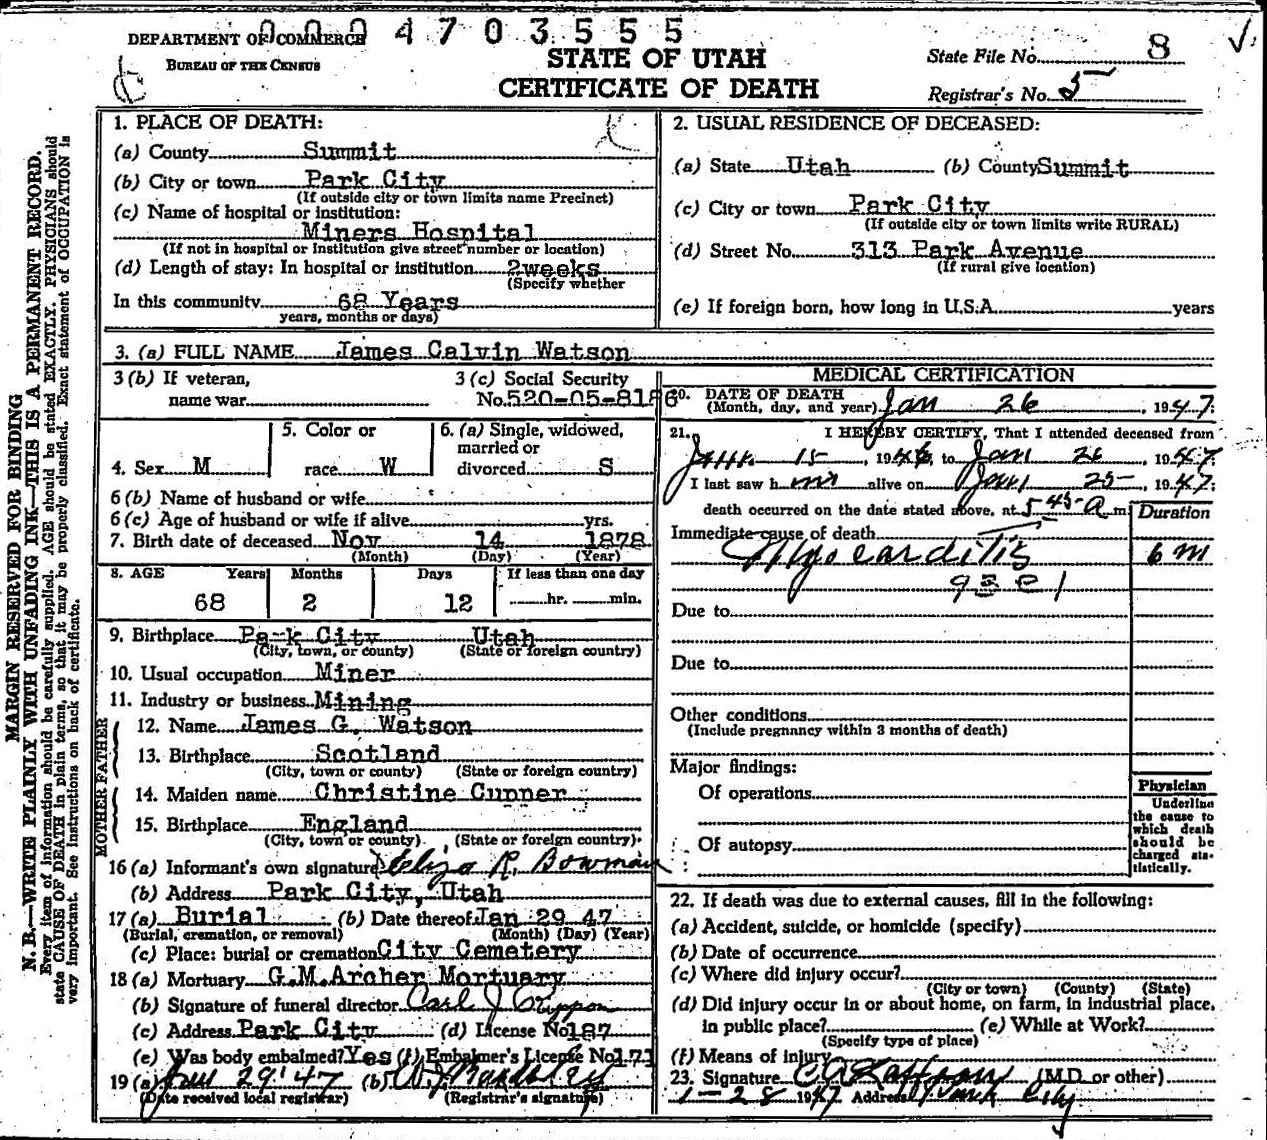 0004703555
DEPARTMENT OF COMMERCE
BUREAU OF THE CENSUS
STATE OF UTAH
CERTIFICATE OF DEATH
State File No. 8
Registrar's No. 5
MARGIN RESERVED FOR BINDING
N. B.—WRITE PLAINLY WITH UNFADING INK—THIS IS A PERMANENT RECORD.
Every item of information should be carefully supplied. AGE should be stated EXACTLY. PHYSICIANS should
state CAUSE OF DEATH in plain terms, so that it may be properly classified. Exact statement of OCCUPATION is
very important. See instructions on back of certificate.
1. PLACE OF DEATH:
(a) County Summit
(b) City or town Park City
(If outside city or town limits name Precinct)
(c) Name of hospital or institution:
Miners Hospital
(If not in hospital or institution give street number or location)
(d) Length of stay: In hospital or institution 2weeks
(Specify whether
In this community 68 Years
years, months or days)
2. USUAL RESIDENCE OF DECEASED:
(a) State Utah (b) County Summit
(c) City or town Park City
(If outside city or town limits write RURAL)
(d) Street No. 313 Park Avenue
(If rural give location)
(e) If foreign born, how long in U.S.A. years
3. (a) FULL NAME James Calvin Watson
3 (b) If veteran,
name war
3 (c) Social Security
No. 520-05-8186
4. Sex M
5. Color or
race W
6. (a) Single, widowed,
married or
divorced S
6 (b) Name of husband or wife
6 (c) Age of husband or wife if alive yrs.
7. Birth date of deceased Nov 14 1878
(Month) (Day) (Year)
8. AGE Years Months Days If less than one day
68 2 12 hr. min.
9. Birthplace Park City Utah
(City, town, or county) (State or foreign country)
10. Usual occupation Miner
11. Industry or business Mining
FATHER
12. Name James G. Watson
13. Birthplace Scotland
(City, town or county) (State or foreign country)
MOTHER
14. Maiden name Christine Cupper
15. Birthplace England
(City, town or county) (State or foreign country)
16 (a) Informant's own signature Eliza R. Bowman
(b) Address Park City, Utah
17 (a) Burial (b) Date thereof Jan 29 47
(Burial, cremation, or removal) (Month) (Day) (Year)
(c) Place: burial or cremation City Cemetery
18 (a) Mortuary G.M.Archer Mortuary
(b) Signature of funeral director Carl J
(c) Address Park City (d) License No 187
(e) Was body embalmed? Yes (f) Embalmer's License No 171
19 (a) Jan 29 '47 (b)
(Date received local registrar) (Registrar's signature)
MEDICAL CERTIFICATION
20. DATE OF DEATH
(Month, day, and year) Jan 26, 1947
21. I HEREBY CERTIFY, That I attended deceased from
15, 194 , to Jan 26, 1947
I last saw h im alive on Jan 25, 1947;
death occurred on the date stated above, at 5-45 A m
Duration
Immediate cause of death
Myocarditis 6 m
93 e 1
Due to
Due to
Other conditions
(Include pregnancy within 3 months of death)
Major findings:
Of operations
Of autopsy
Physician
Underline
the cause to
which death
should be
charged sta-
tistically.
22. If death was due to external causes, fill in the following:
(a) Accident, suicide, or homicide (specify)
(b) Date of occurrence
(c) Where did injury occur?
(City or town) (County) (State)
(d) Did injury occur in or about home, on farm, in industrial place,
in public place? (e) While at Work?
(Specify type of place)
(f) Means of injury
23. Signature (M.D. or other)
1-28 1947 Address Park City